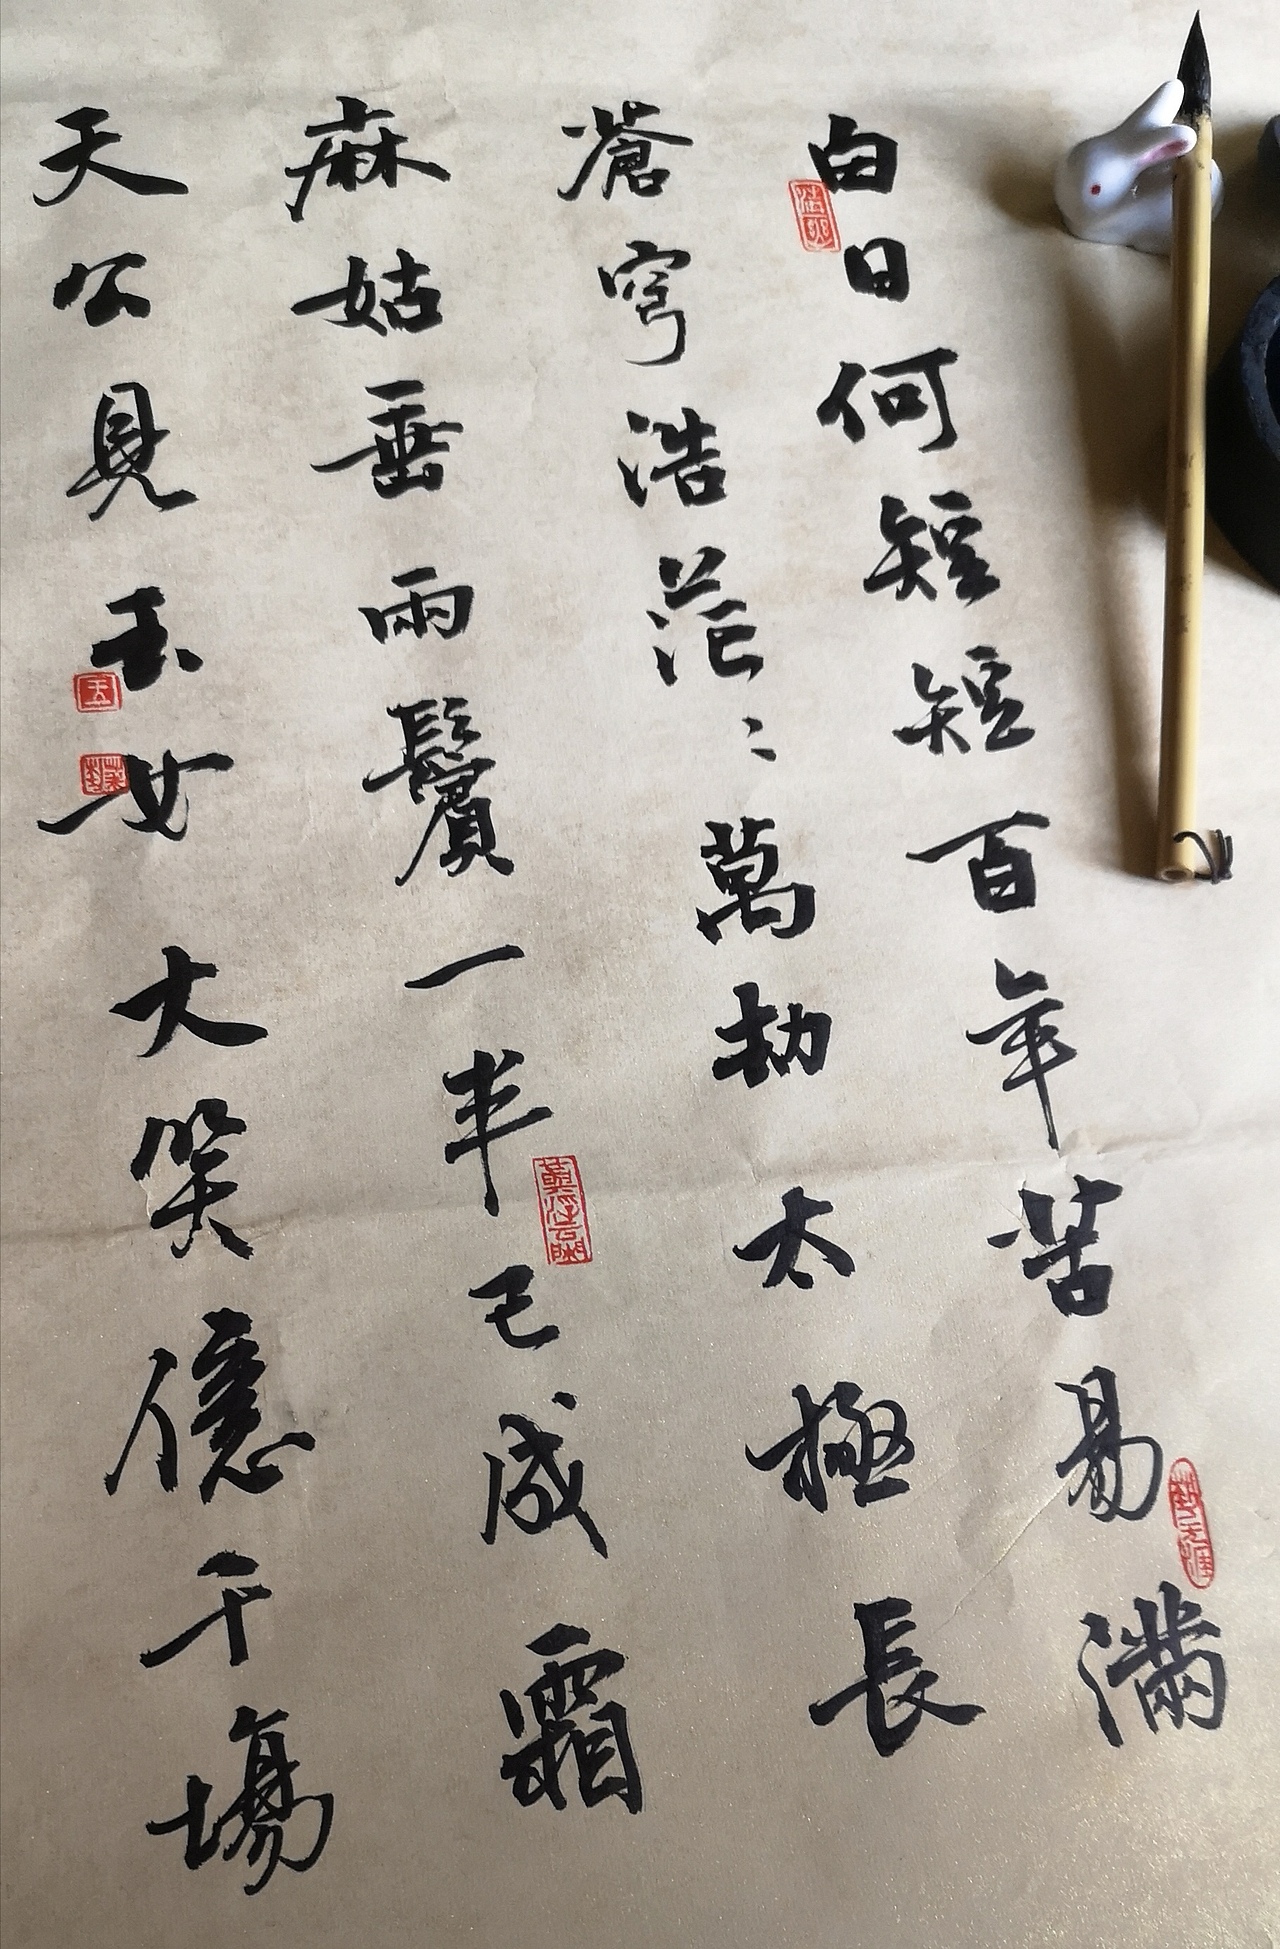 白日何短短百年苦易滿
蒼穹浩茫〻萬劫太極長
麻姑垂兩鬢一半已成霜
天公見玉女大笑億千場